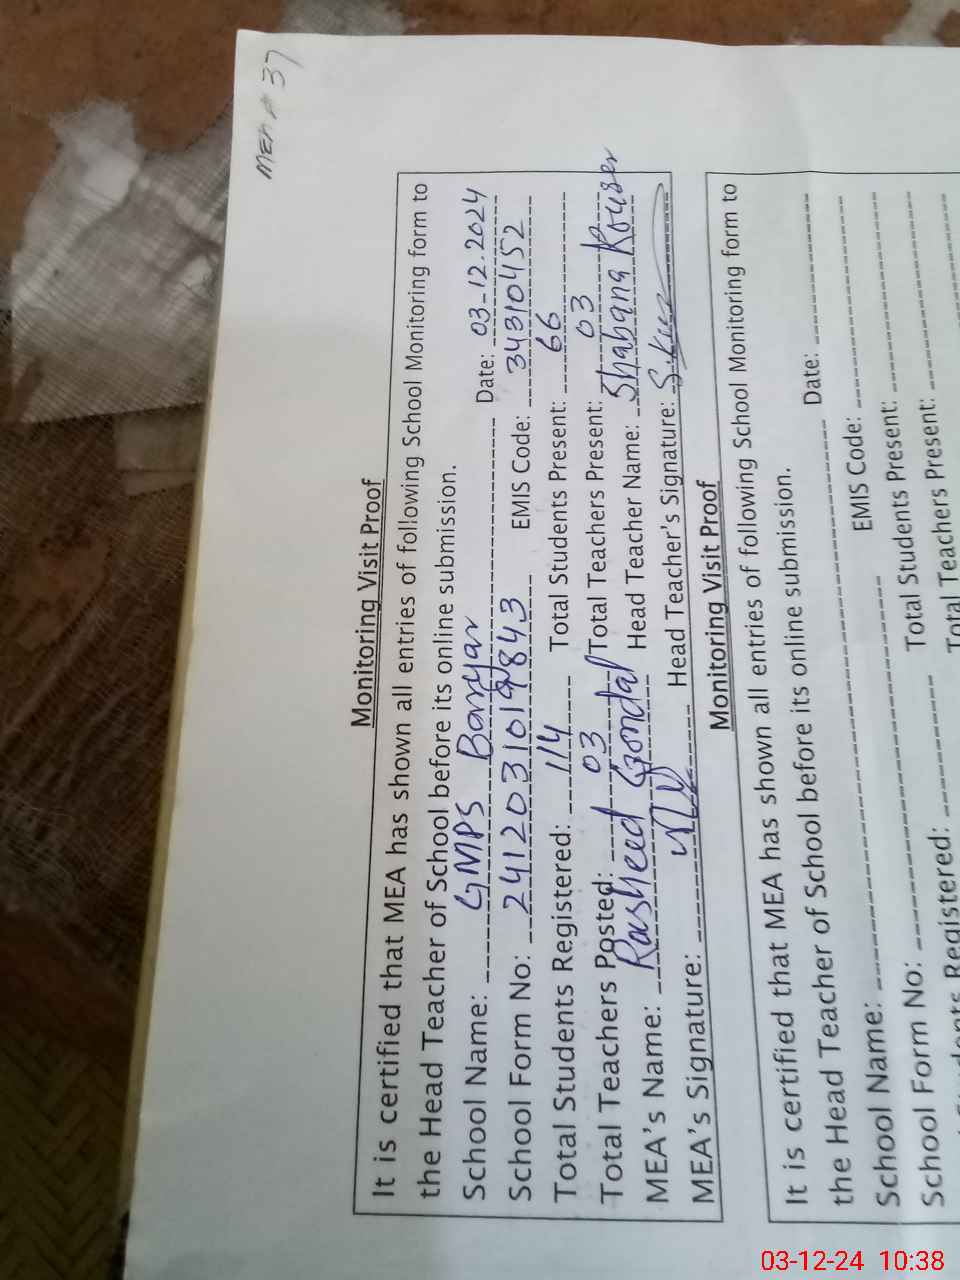 MEA # 37
Monitoring Visit Proof
It is certified that MEA has shown all entries of following School Monitoring form to
the Head Teacher of School before its online submission.
School Name: GMPS Baryar Date: 03-12.2024
School Form No: 2412031019843 EMIS Code: 34310452
Total Students Registered: 114 Total Students Present: 66
Total Teachers Posted: 03 Total Teachers Present: 03
MEA's Name: Rasheed Gondal Head Teacher Name: Shabana Kouser
MEA's Signature: Head Teacher's Signature: S.Kur
Monitoring Visit Proof
It is certified that MEA has shown all entries of following School Monitoring form to
the Head Teacher of School before its online submission.
School Name: Date:
School Form No: EMIS Code:
Students Registered: Total Students Present:
Total Teachers Present:
03-12-24 10:38